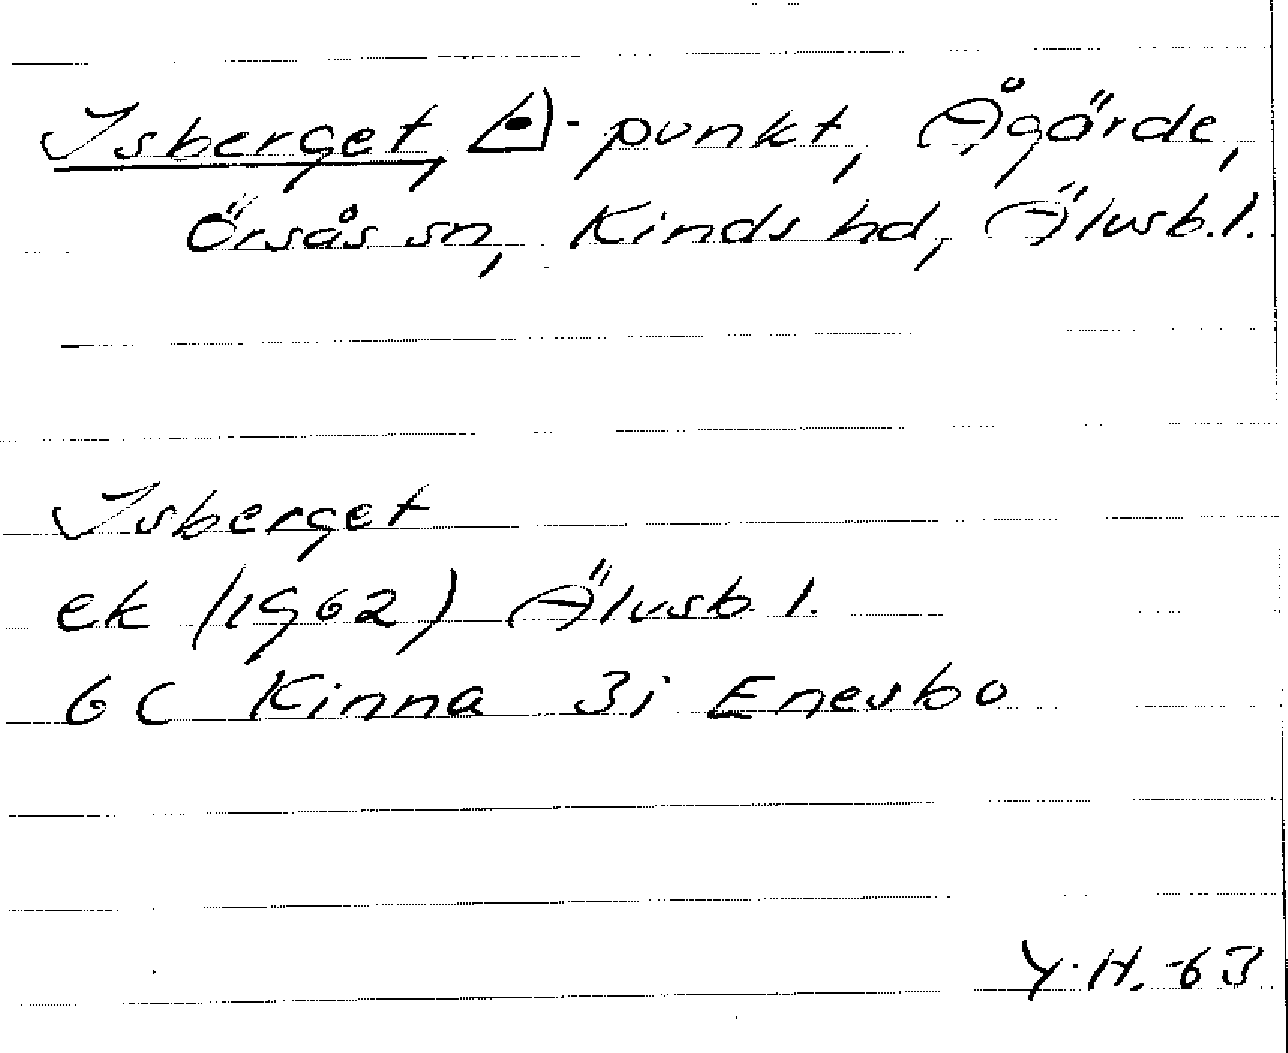 Isberget, △-punkt, Ågärde,
Örsås sn, Kinds hd, Älvsb.l.
Isberget
ek (1962) Älvsb l.
6C Kinna 3i Enesbo
Y.H. -63